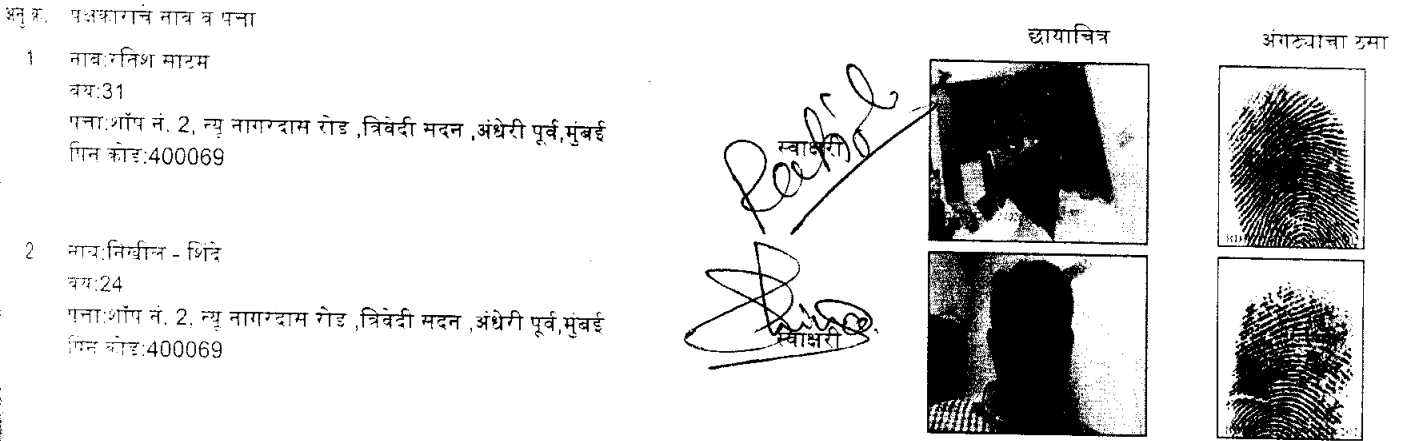 अनु क्र. पक्षकाराचे नाव व पत्ता
छायाचित्र
अंगठ्याचा ठसा
1 नाव:रतिश साटम
वय:31
पत्ता:शॉप नं. 2, न्यू नागरदास रोड ,त्रिवेदी सदन ,अंधेरी पूर्व,मुंबई
पिन कोड:400069
स्वाक्षरी
2 नाव:निखील - शिंदे
वय:24
पत्ता:शॉप नं. 2, न्यू नागरदास रोड ,त्रिवेदी सदन ,अंधेरी पूर्व,मुंबई
पिन कोड:400069
स्वाक्षरी